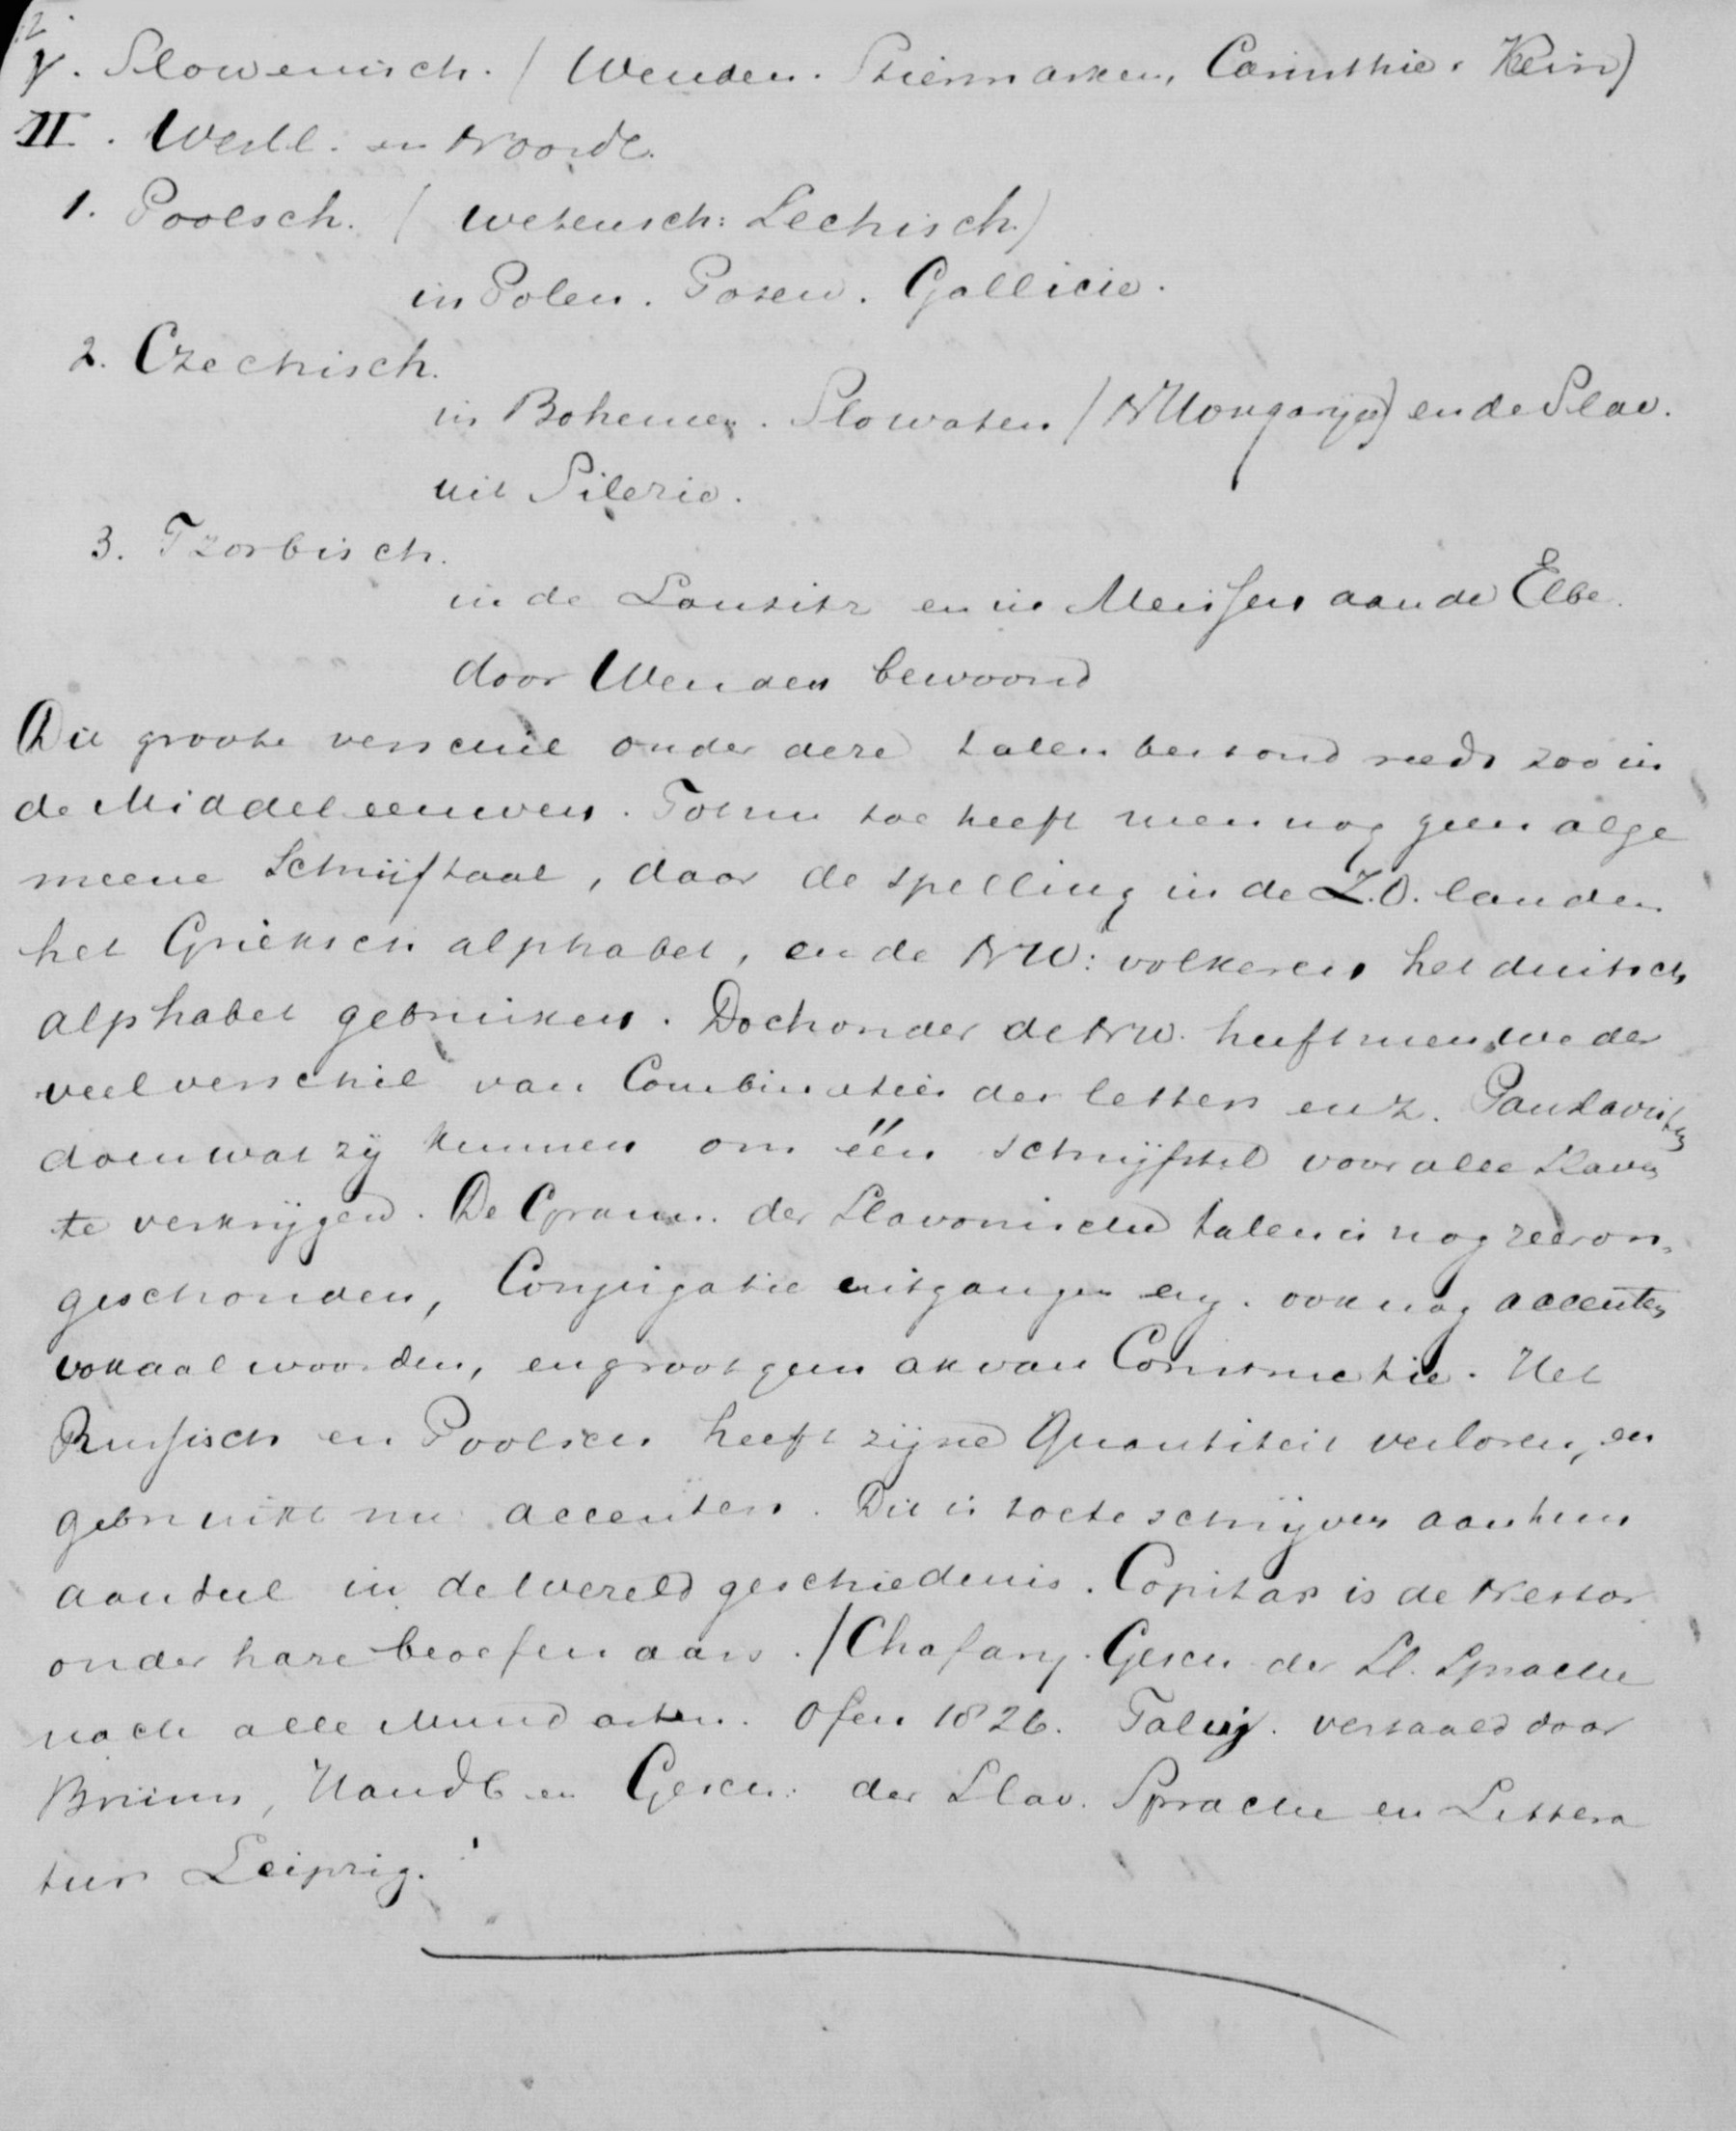 γ. Slowenisch. (Wenden. Stiermarken, Carinthie. Krin)
II. Westl. en Noordl.
1. Poolsch. (wetensch: Lechisch)
in Polen. Posen. Gallicie.
2. Czechisch.
in Bohemen. Slowaken (N Hongarije) en de Slav.
uit Silezie.
3. Tzorbisch.
in de Lausitz en in Meissen aan de Elbe.
door Wenden bewoond
Dit groote verschil onder deze talen bestond reeds zoo in
de Middeleeuwen. Tot nu toe heeft men nog geen alge
meene Schrijftaal, daar de spelling in de Z.O. landen
het Grieksch alphabet, en de NW: volkeren het duitsch
alphabet gebruiken. Doch onder de NW. heeft men weder
veel verschil van Combinatiën der letters enz. Panslavisten
doen wat zij kunnen om één schrijfstijl voor alle Slaven
te verkrijgen. De Gramm. der Slavonische talen is nog zeer on-
geschonden, Conjugatie uitgangen en ook nog accenten
vokaal woorden, en groot gemak van Constructie. Het
Russisch en Poolsch heeft zijne Quantiteit verloren, en
gebruikt nu accenten. Dit is toe te schrijven aan hun
aandeel in de wereldgeschiedenis. Copitar is de Nestor
onder hare beoefenaars. / Chafary. Gesch der Sl. Sprache
nach alle Mundarten. Ofen 1826. Talvj. vertaald door
Brühm, Handb. en Gesch: der Slav. Sprache en Littera
tur Leipzig.